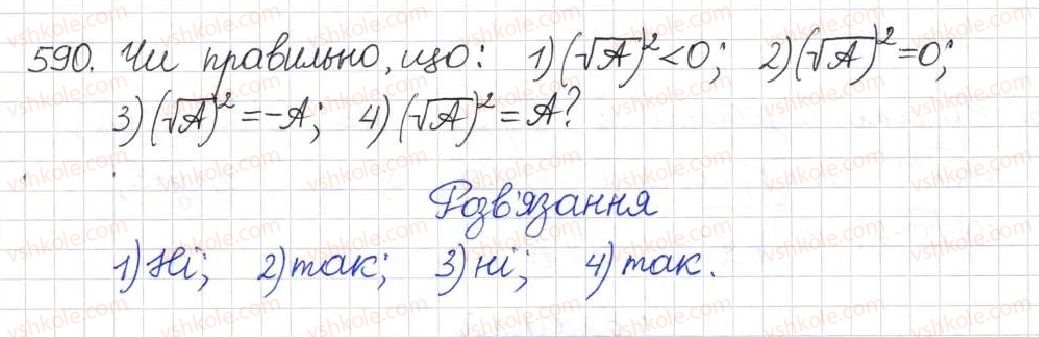 590. Чи правильно, що: 1) (√A)² < 0; 2) (√A)² = 0;
3) (√A)² = -A; 4) (√A)² = A?
Розв'язання
1) Ні; 2) так; 3) ні; 4) так.